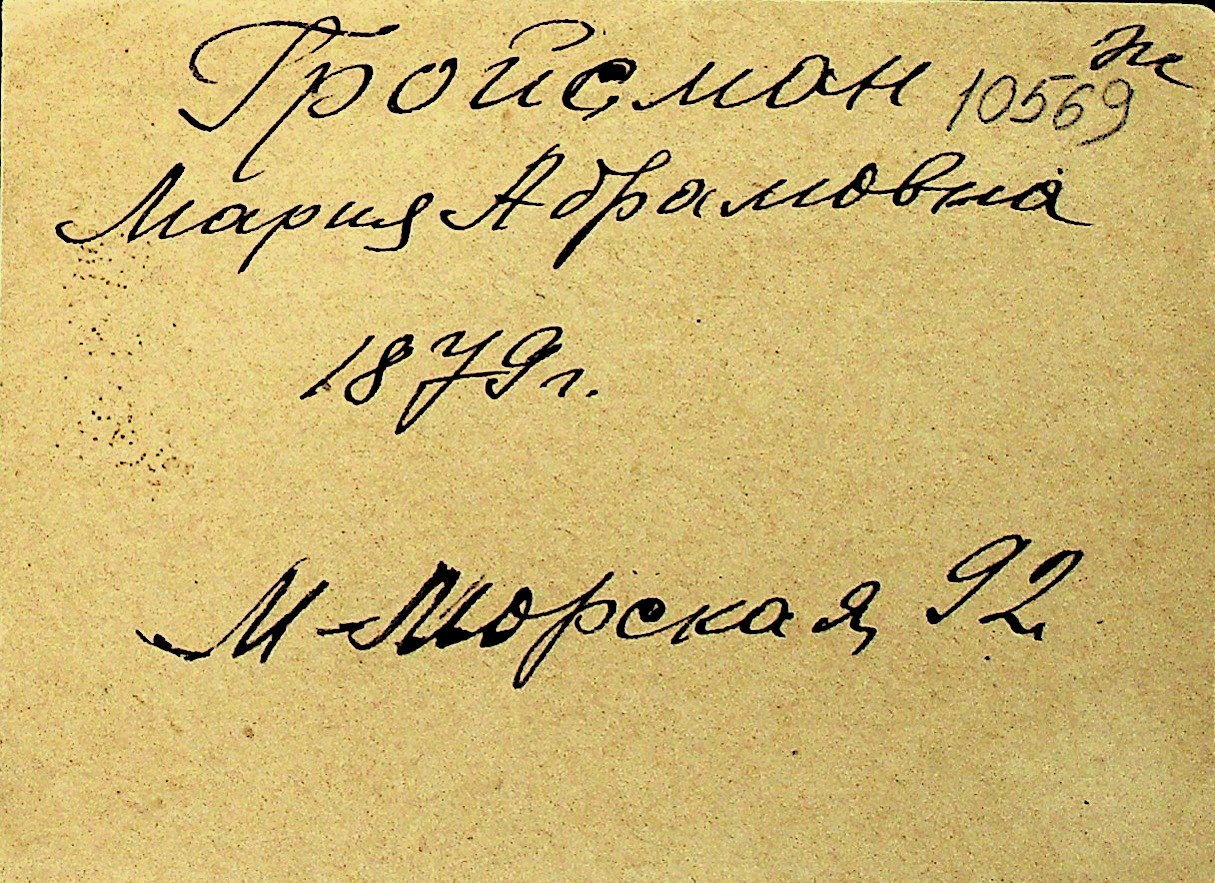 Гройсман 10569 ж
Мария Абрамовна
1879 г.
М-Морская, 92